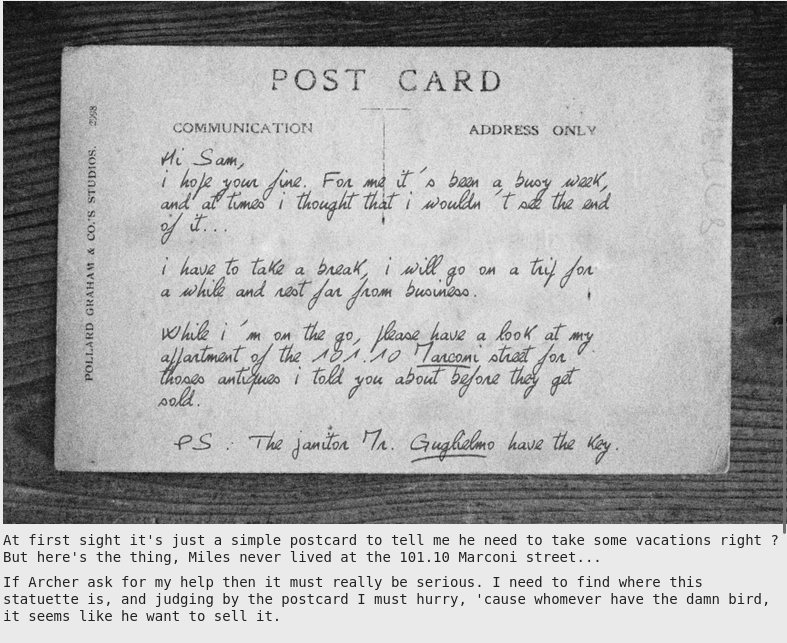 POST CARD
COMMUNICATION
ADDRESS ONLY
POLLARD GRAHAM & CO.'S STUDIOS. 2998
Hi Sam,
i hope your fine. For me it's been a busy week,
and at times i thought that i wouldn't see the end
of it...
i have to take a break, i will go on a trip for
a while and rest far from business.
While i'm on the go, please have a look at my
appartment of the 101.10 Marconi street for
thoses antiques i told you about before they get
sold.
PS : The janitor Mr. Guglielmo have the key.
At first sight it's just a simple postcard to tell me he need to take some vacations right ?
But here's the thing, Miles never lived at the 101.10 Marconi street...
If Archer ask for my help then it must really be serious. I need to find where this
statuette is, and judging by the postcard I must hurry, 'cause whomever have the damn bird,
it seems like he want to sell it.